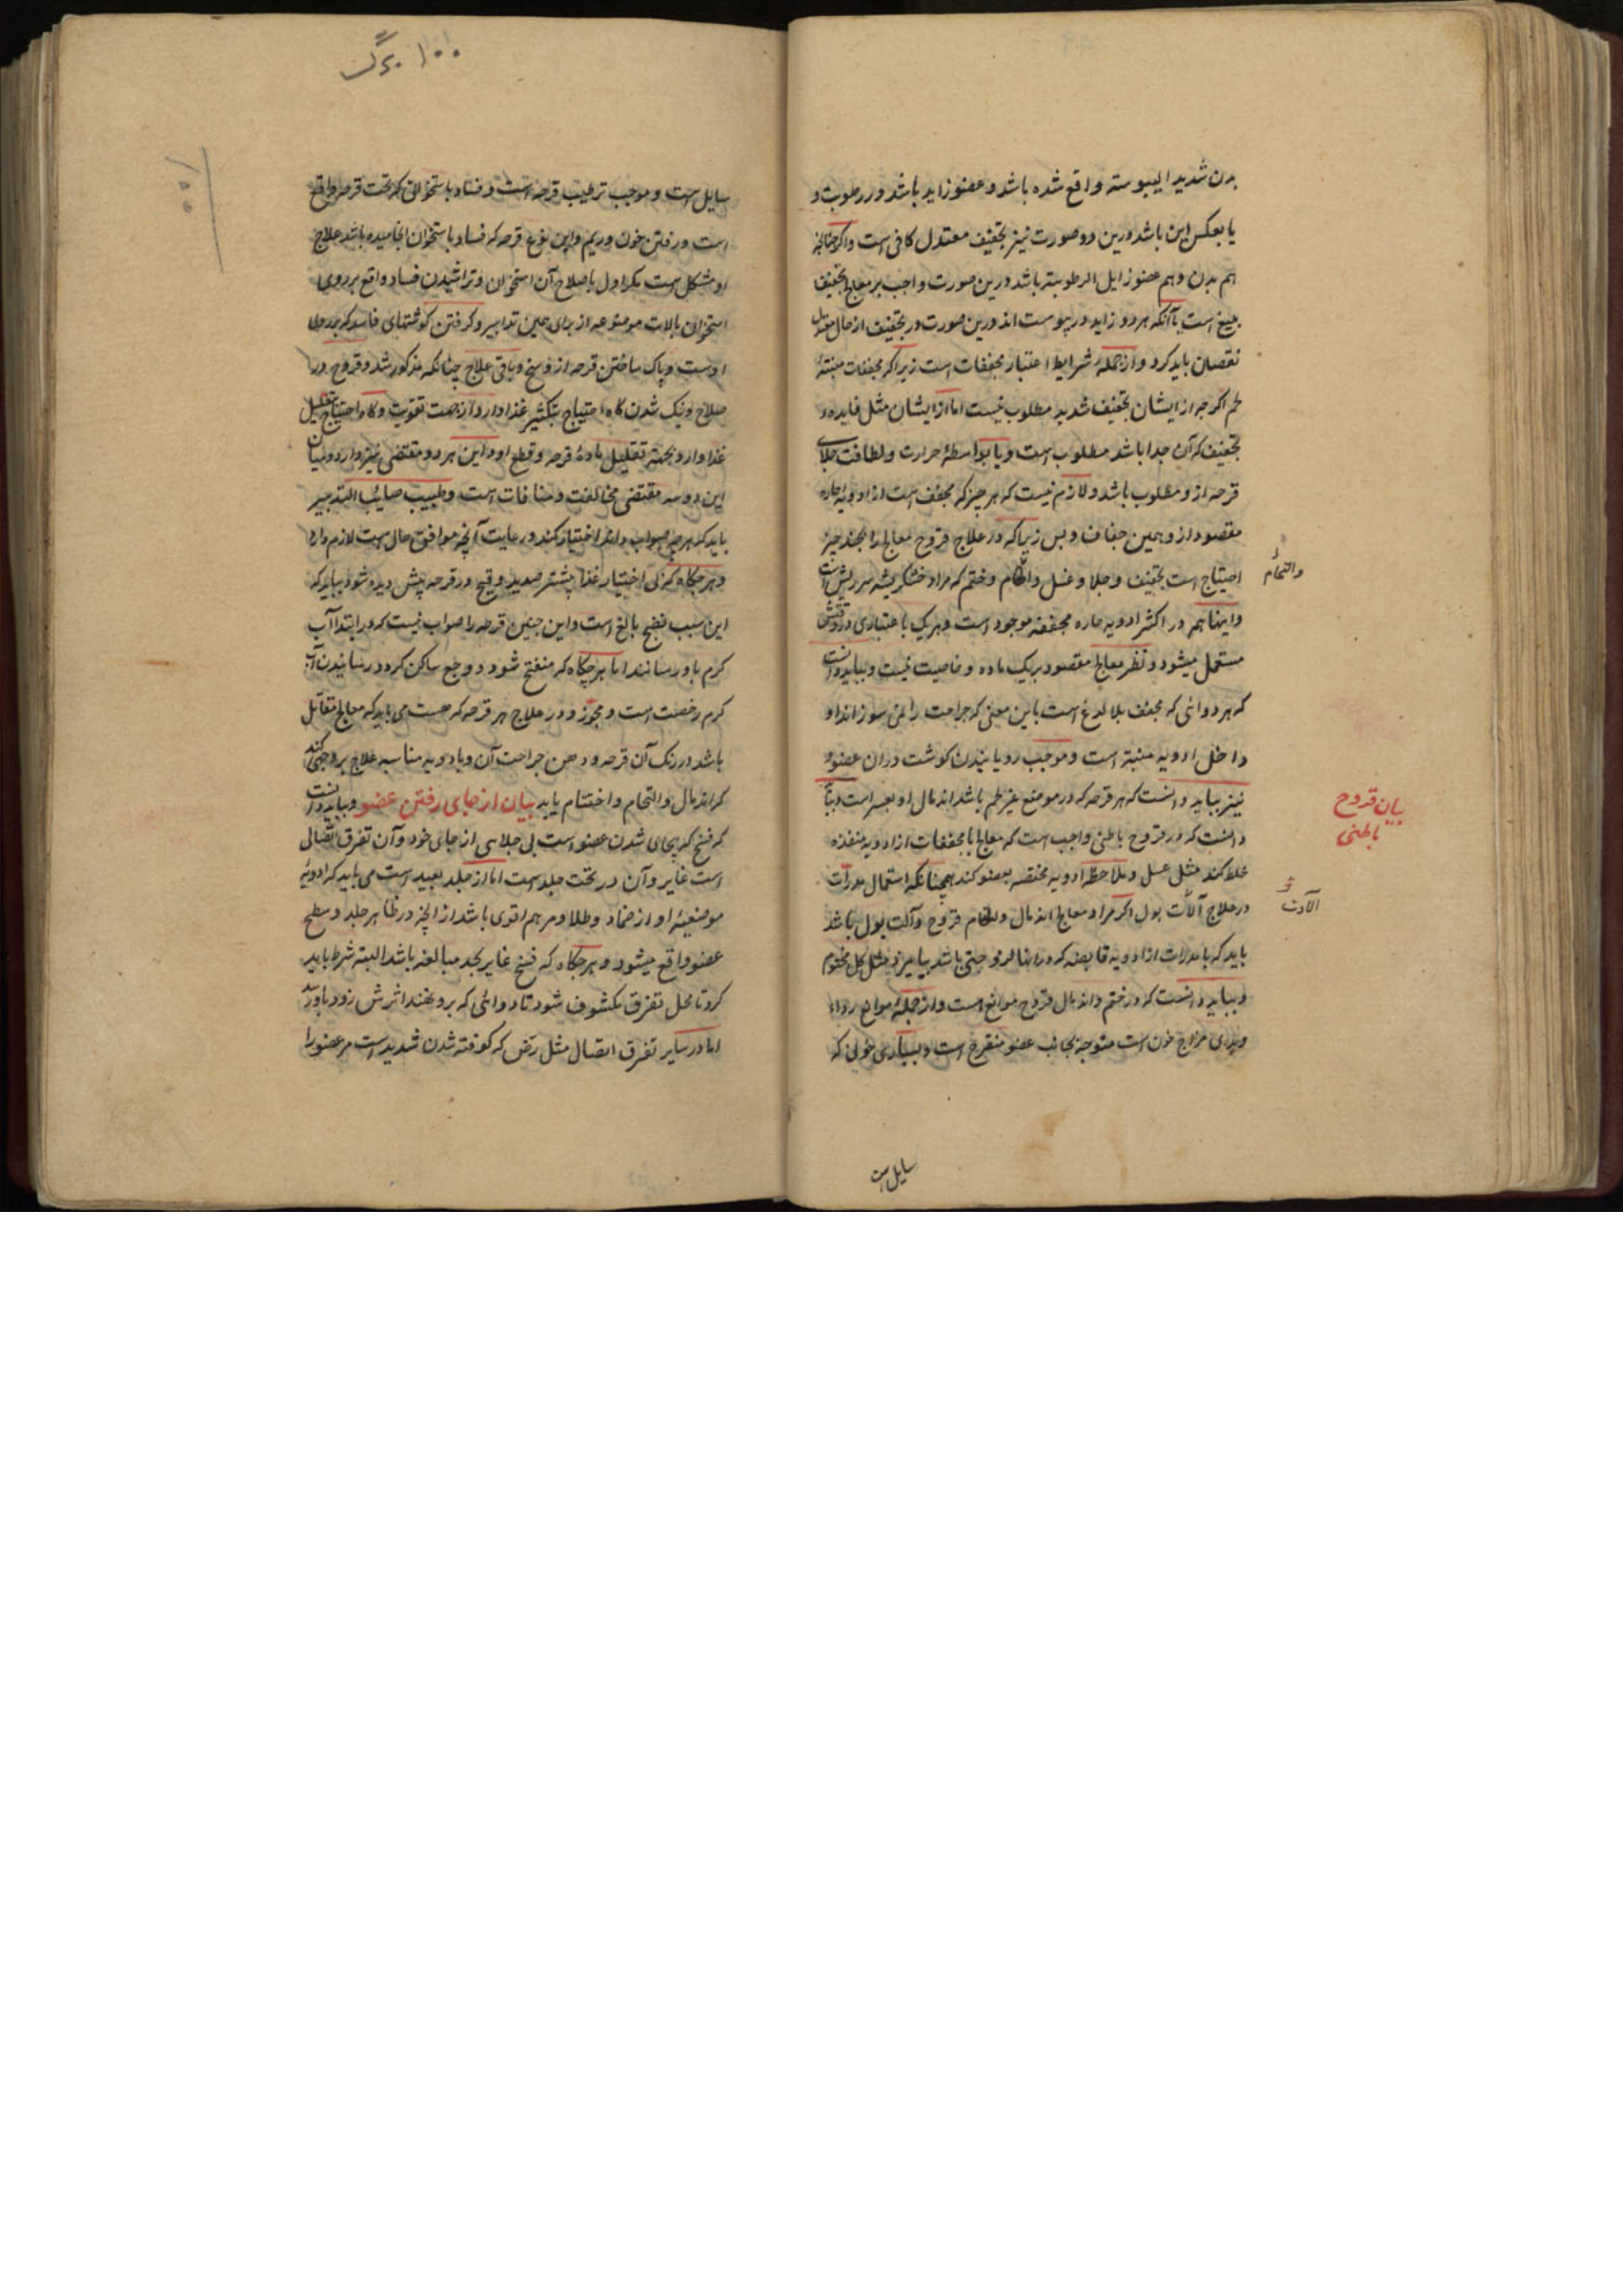 بدن شدید الیبوسته واقع شده باشد و عضو زاید باشد در رطوبت و
یا بعکس این باشد درین دو صورت نیز تجفیف معتدل کافی است و اکر چنانچه
هم بدن و هم عضو زایل الرطوبته باشد درین صورت واجب بر معالج تجفیف
بلیغ است یا آنکه هر دو زاید در یبوست اند درین صورت در تجفیف از حال معتدل
نقصان باید کرد و از جمله شرایط اعتبار مجففات است زیرا که مجففات منبتهٔ
لحم اکر چه از ایشان تجفیف شدید مطلوب نیست اما از ایشان مثل فایده و
تجفیف که آن جدا باشد مطلوب است و یا بواسطهٔ حرارت و لطافت جلای
قرحه از و مطلوب باشد و لازم نیست که هر چیز که مجفف است از ادویهٔ حاره
مقصود از و همین جفاف و بس زیرا که در علاج قروح معالج را بچند چیز
احتیاج است تجفیف و جلا و غسل والحام و ختم که مراد خشکریشه سر ریش است
والتحام
و اینها هم در اکثر ادویه حاره مجففه موجود است و هریک باعتباری در وقتش
مستعمل میشود و نظر معالج مقصود بریک ماده و خاصیت نیست و بباید دانست
که هر دوائی که مجفف بلا لدغ است باین معنی که جراحت را نمی سوزاند او
داخل ادویه منبته است و موجب رویانیدن کوشت در ان عضو و
نیز بباید دانست که هر قرحه که در موضع غیر لحم باشد اندمال او بعسر است و بباید
بیان قروح
باطنی
دانست که در قروح باطنی واجب است که معالج با مجففات از ادویه منفذه
خلط کند مثل عسل و ملاحظه ادویه مختصه بعضو کند همچنانکه استعمال مدرات
در علاج آلات بول اکر مراد معالج اندمال والحام قروح و آلت بول باشد
باید که با مدرات از ادویه قابضه که در انها لزوجتی باشد بیامیزد مثل کل مختوم
و بباید دانست که در ختم و اندمال قروح موانع است و از جمله موانع رداءت
و بدی مزاج خون است متوجه بجانب عضو متقرح است و بسیاری خونی که
سایل است
۱۰۰ برگ
سایل است و موجب ترطیب قرحه است و فساد با ستخوانی که تحت قرحه واقع
است و رفتن خون و ریم و این نوع قرحه که فساد با ستخوان انجامیده باشد علاج
او مشکل است مکر اول باصلاح آن استخوان و تراشیدن فساد واقع بر روی
استخوان بالات موضوعه از برای همین تدابیر و کرفتن کوشتهای فاسد که بر حوالی
اوست و پاک ساختن قرحه از وسخ و باقی علاج چنانکه مذکور شد و قروح در
صلاح و نیک شدن کاه احتیاج بتکثیر غذا دارد از جهت تقویت و کاه احتیاج بتقلیل
غذا دارد بجهته تقلیل مادهٔ قرحه و قطع او و این هر دو مقتضی نیز دارد و میان
این دو سه مقتضی مخالفت و منافات است و طبیب صایب التدبیر
باید که هر چه صواب داند اختیار کند و رعایت آنچه موافق حال است لازم دارد
و هر چکاه که بی اختیار غذا بیشتر صدید و قیح در قرحه پیش دیده شود بباید که
این سبب نضج بالغ است و این چنین قرحه را صواب نیست که در ابتدا آب
کرم باو رسانند اما هر چکاه که منفتح شود و وجع ساکن کرد در رسانیدن آب
کرم رخصت است و مجوز و در علاج هر قرحه که هست می باید که معالج متأمل
باشد در رنک آن قرحه و دهن جراحت آن و با دویه مناسبه علاج بر وجهی کند
که اندمال والتحام و اختتام یابد بیان از جای رفتن عضو و بباید دانست
که فسخ که بجای شدن عضو است بی جلاهی از جای خود و آن تفرق اتصالی
است غایر و آن در تحت جلد است اما از جلد بعید است می باید که ادویهٔ
موضعیهٔ او از ضماد و طلا و مرهم اقوی باشد از انچه در ظاهر جلد و سطح
عضو واقع میشود و هر چکاه که فسخ غایر بحد مبالغه باشد البته شرط باید
کرد تا محل تفرق مکشوف شود تا دوائی که برو نهند اثرش زود باو رسد
اما در سایر تفرق اتصال مثل رض که کوفته شدن شدید است مر عضو را